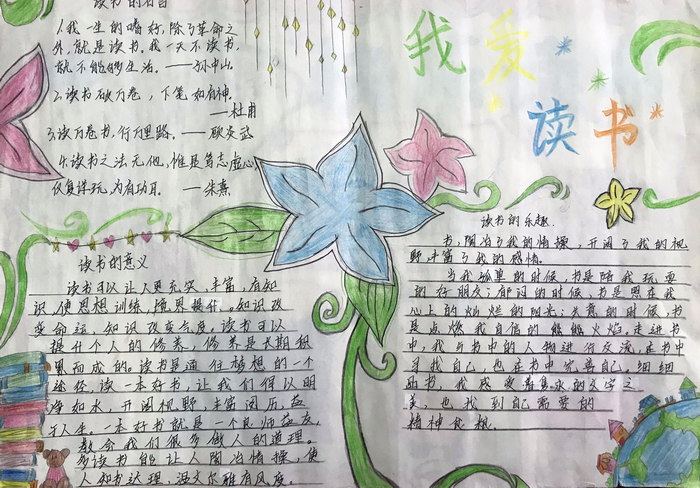 读书的名言
1.我一生的嗜好,除了革命之
外,就是读书。我一天不读书,
就不能够生活。——孙中山
2.读书破万卷,下笔如有神。
——杜甫
3.读万卷书,行万里路。——顾炎武
4.读书之法无他,惟是笃志虚心,
反复详玩,为有功耳。——朱熹
我爱
读书
读书的意义
读书可以让人更充实,丰富,有知
识,使思想训练,境界提升。知识改
变命运,知识改变态度,读书可以
提升个人的修养,修养是长期积
累而成的。读书是通往梦想的一个
途径,读一本好书,让我们得以明
净如水,开阔视野,丰富阅历,益
于人生。一本好书就是一个良师益友,
教会我们很多做人的道理。
多读书能让人陶冶情操,使
人知书达理,温文尔雅有风度。
读书的乐趣
书,陶冶了我的情操,开阔了我的视
野,丰富了我的感情。
当我孤单的时候,书是陪我玩耍
的好朋友;郁闷的时候,书是照在我
心上的灿烂的阳光;失意的时候,书
是点燃我自信的熊熊火焰。走进书
中,我与书中的人物进行交流,在书中
寻找自己,也在书中完善自己。细细
品书,我感受着隽永的文字之
美,也找到自己需要的
精神食粮。